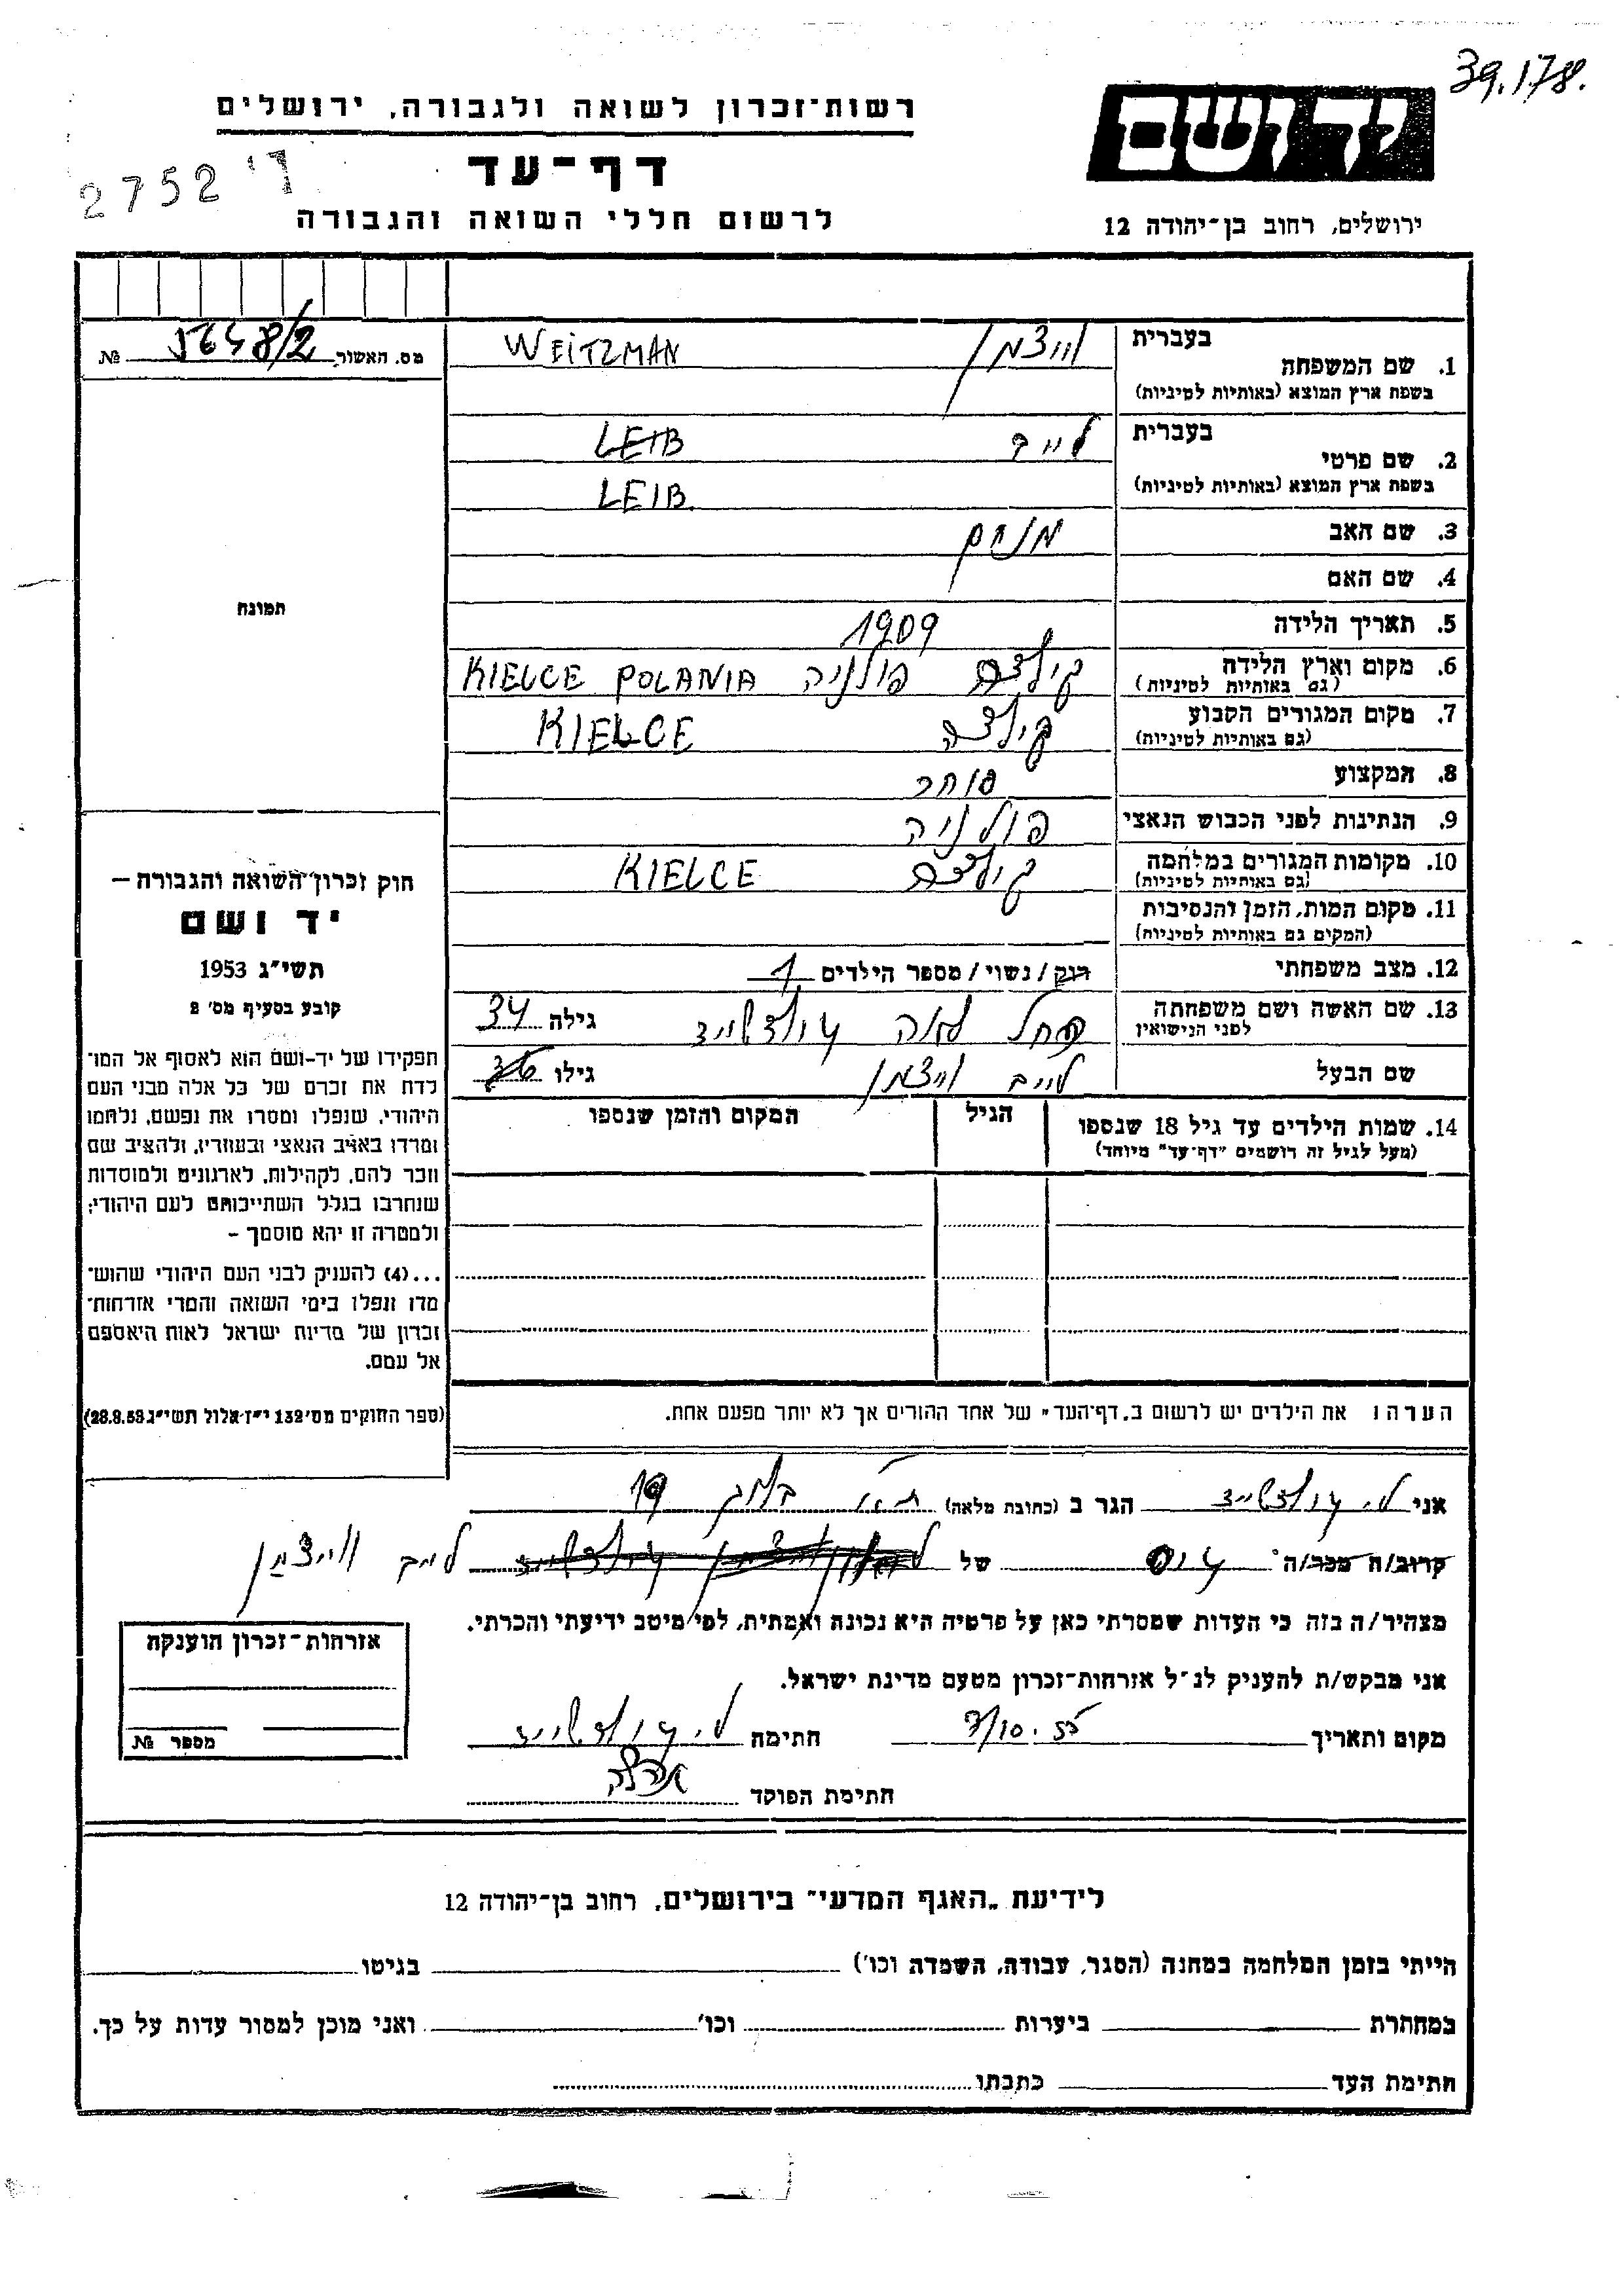 39.178.
יד ושם
ירושלים, רחוב בן-יהודה 12
רשות-זכרון לשואה ולגבורה, ירושלים
דף-עד
לרשום חללי השואה והגבורה
2752 ד'
מס. האשור №
1. שם המשפחה בעברית ווייצמן WEITZMAN
בשפת ארץ המוצא (באותיות לטיניות)
2. שם פרטי בעברית לייב LEIB
בשפת ארץ המוצא (באותיות לטיניות) LEIB
3. שם האב מנחם
4. שם האם
5. תאריך הלידה 1909
6. מקום וארץ הלידה קילצה פולניה KIELCE POLANIA
(גם באותיות לטיניות)
7. מקום המגורים הקבוע קילצה KIELCE
(גם באותיות לטיניות)
8. המקצוע סוחר
9. הנתינות לפני הכבוש הנאצי פולניה
10. מקומות המגורים במלחמה קילצה KIELCE
(גם באותיות לטיניות)
11. מקום המות, הזמן והנסיבות
(המקום גם באותיות לטיניות)
12. מצב משפחתי רווק / נשוי / מספר הילדים 1
13. שם האשה ושם משפחתה לפני הנישואין רחל לאה גולדשייד גילה 34
שם הבעל לייב ווייצמן גילו 36
14. שמות הילדים עד גיל 18 שנספו
(מעל לגיל זה רושמים "דף-עד" מיוחד)
הגיל
המקום והזמן שנספו
תמונה
חוק זכרון השואה והגבורה –
יד ושם
תשי"ג 1953
קובע בסעיף מס' 2
תפקידו של יד-ושם הוא לאסוף אל המו־
לדת את זכרם של כל אלה מבני העם
היהודי, שנפלו ומסרו את נפשם, נלחמו
ומרדו באויב הנאצי ובעוזריו, ולהציב שם
וזכר להם, לקהילות, לארגונים ולמוסדות
שנחרבו בגלל השתייכותם לעם היהודי;
ולמטרה זו יהא מוסמך –
...(4) להעניק לבני העם היהודי שהוש־
מדו ונפלו בימי השואה והמרי אזרחות־
זכרון של מדינת ישראל לאות היאספם
אל עמם.
(ספר החוקים מס' 132 י"ז אלול תשי"ג 28.8.53)
הערה: את הילדים יש לרשום ב"דף-העד" של אחד ההורים אך לא יותר מפעם אחת.
אני גולדשייד הגר ב (כתובת מלאה) ת"א 19
קרוב/ה מכר/ה גיס של לייב ווייצמן
מצהיר/ה בזה כי העדות שמסרתי כאן על פרטיה היא נכונה ואמתית, לפי מיטב ידיעתי והכרתי.
אני מבקש/ת להעניק לנ"ל אזרחות-זכרון מטעם מדינת ישראל.
מקום ותאריך 7/10.55 חתימה גולדשייד
חתימת הפוקד
אזרחות-זכרון הוענקה
מספר №
לידיעת "האגף המדעי" בירושלים, רחוב בן-יהודה 12
הייתי בזמן המלחמה במחנה (הסגר, עבודה, השמדה וכו') בגיטו
במחתרת ביערות וכו' ואני מוכן למסור עדות על כך.
חתימת העד כתבתו